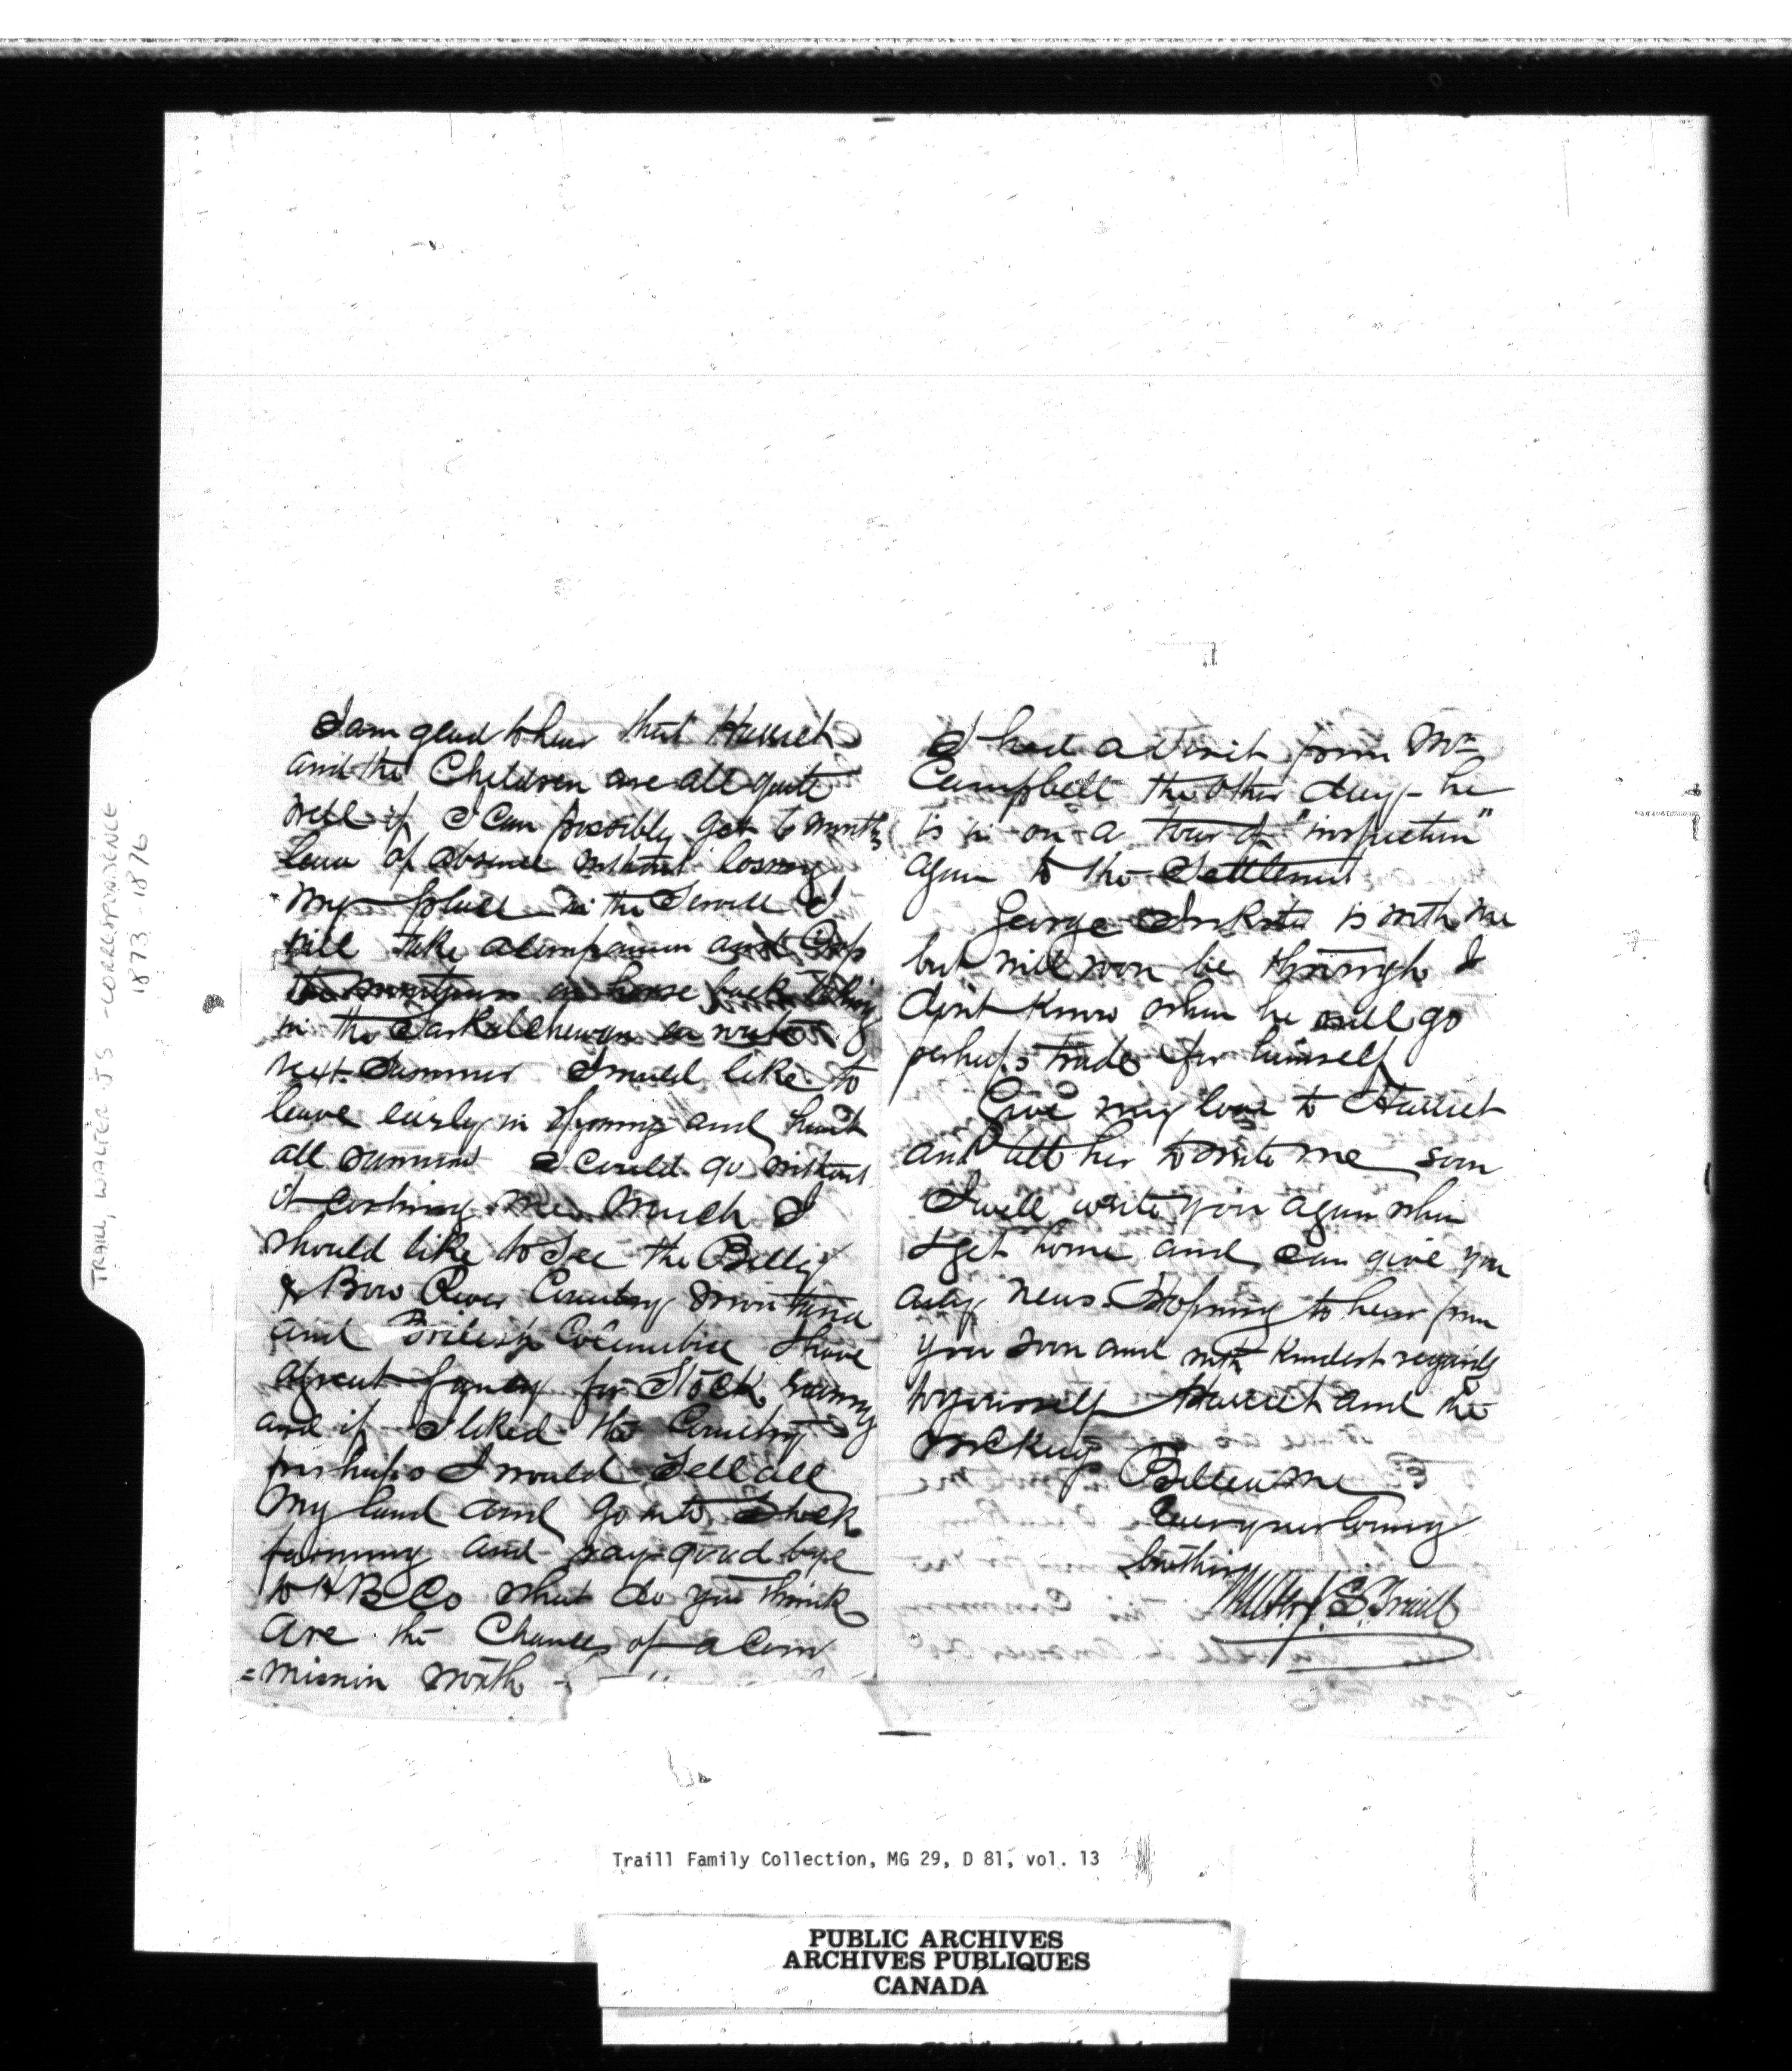 I am glad to hear that Harriet
and the Children are all quite
well if I can possibly get 6 months
leave of absence without losing
my place in the Service I
will take a companion and Cross
the mountains on horse back taking
in the Saskatchewan en route
next Summer I would like to
leave early in Spring and hunt
all summer I could go without
it costing me much I
should like to See the Belly
& Bow River Country Montana
and British Columbia I have
a great fancy for Stock raising
and if I liked the Country
perhaps I would Sell all
my land and go into Stock
farming and say good bye
to H B Co what do you think
are the Chances of a Com
=mission north
I had a visit from Mr
Campbell the other day - he
is on a tour of "inspection"
again to the Settlement
George Inkster is with me
but will soon be through I
don't know when he will go
perhaps trade for himself
Give my love to Harriet
and tell her to write me soon
I will write you again when
I get home and can give you
any news. Hoping to hear from
you soon and with kindest regards
to yourself Harriet and the
McKays
Believe me
Ever your loving
brother
Walter J S Traill
TRAILL, WALTER J S - CORRESPONDENCE
1873 - 1876
Traill Family Collection, MG 29, D 81, vol. 13
PUBLIC ARCHIVES
ARCHIVES PUBLIQUES
CANADA